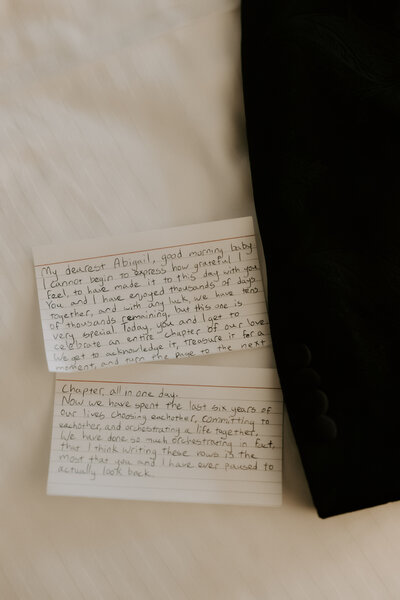 My dearest Abigail, good morning baby
I cannot begin to express how grateful I
feel, to have made it to this day with you
You and I have enjoyed thousands of days
together, and with any luck, we have tens
of thousands remaining, but this one is
very special. Today, you and I get to
celebrate an entire chapter of our love.
We get to acknowledge it, treasure it for a
moment, and turn the page to the next
Chapter, all in one day.
Now we have spent the last six years of
our lives choosing eachother, committing to
eachother, and orchestrating a life together.
We have done so much orchestrating in fact,
that I think writing these vows is the
most that you and I have ever paused to
actually look back.